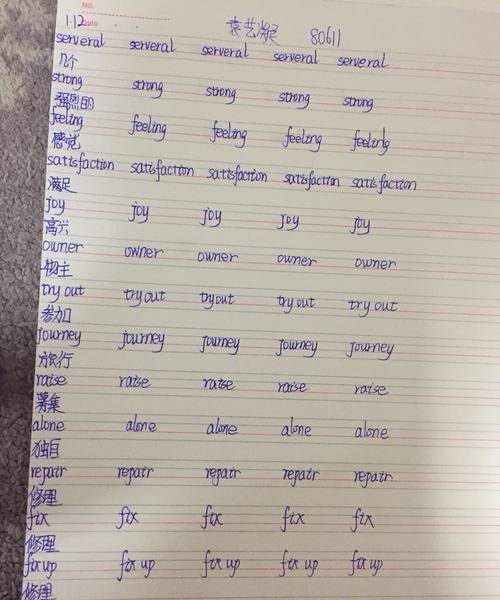 NO.
1.12 Date 袁艺凝 80611
serveral serveral serveral serveral serveral
几个
strong strong strong strong strong
强烈的
feeling feeling feeling feeling feeling
感觉
satisfaction satisfaction satisfaction satisfaction satisfaction
满足
joy joy joy joy joy
高兴
owner owner owner owner owner
物主
try out try out try out try out try out
参加
journey journey journey journey journey
旅行
raise raise raise raise raise
募集
alone alone alone alone alone
独自
repair repair repair repair repair
修理
fix fix fix fix fix
修理
fix up fix up fix up fix up fix up
修理